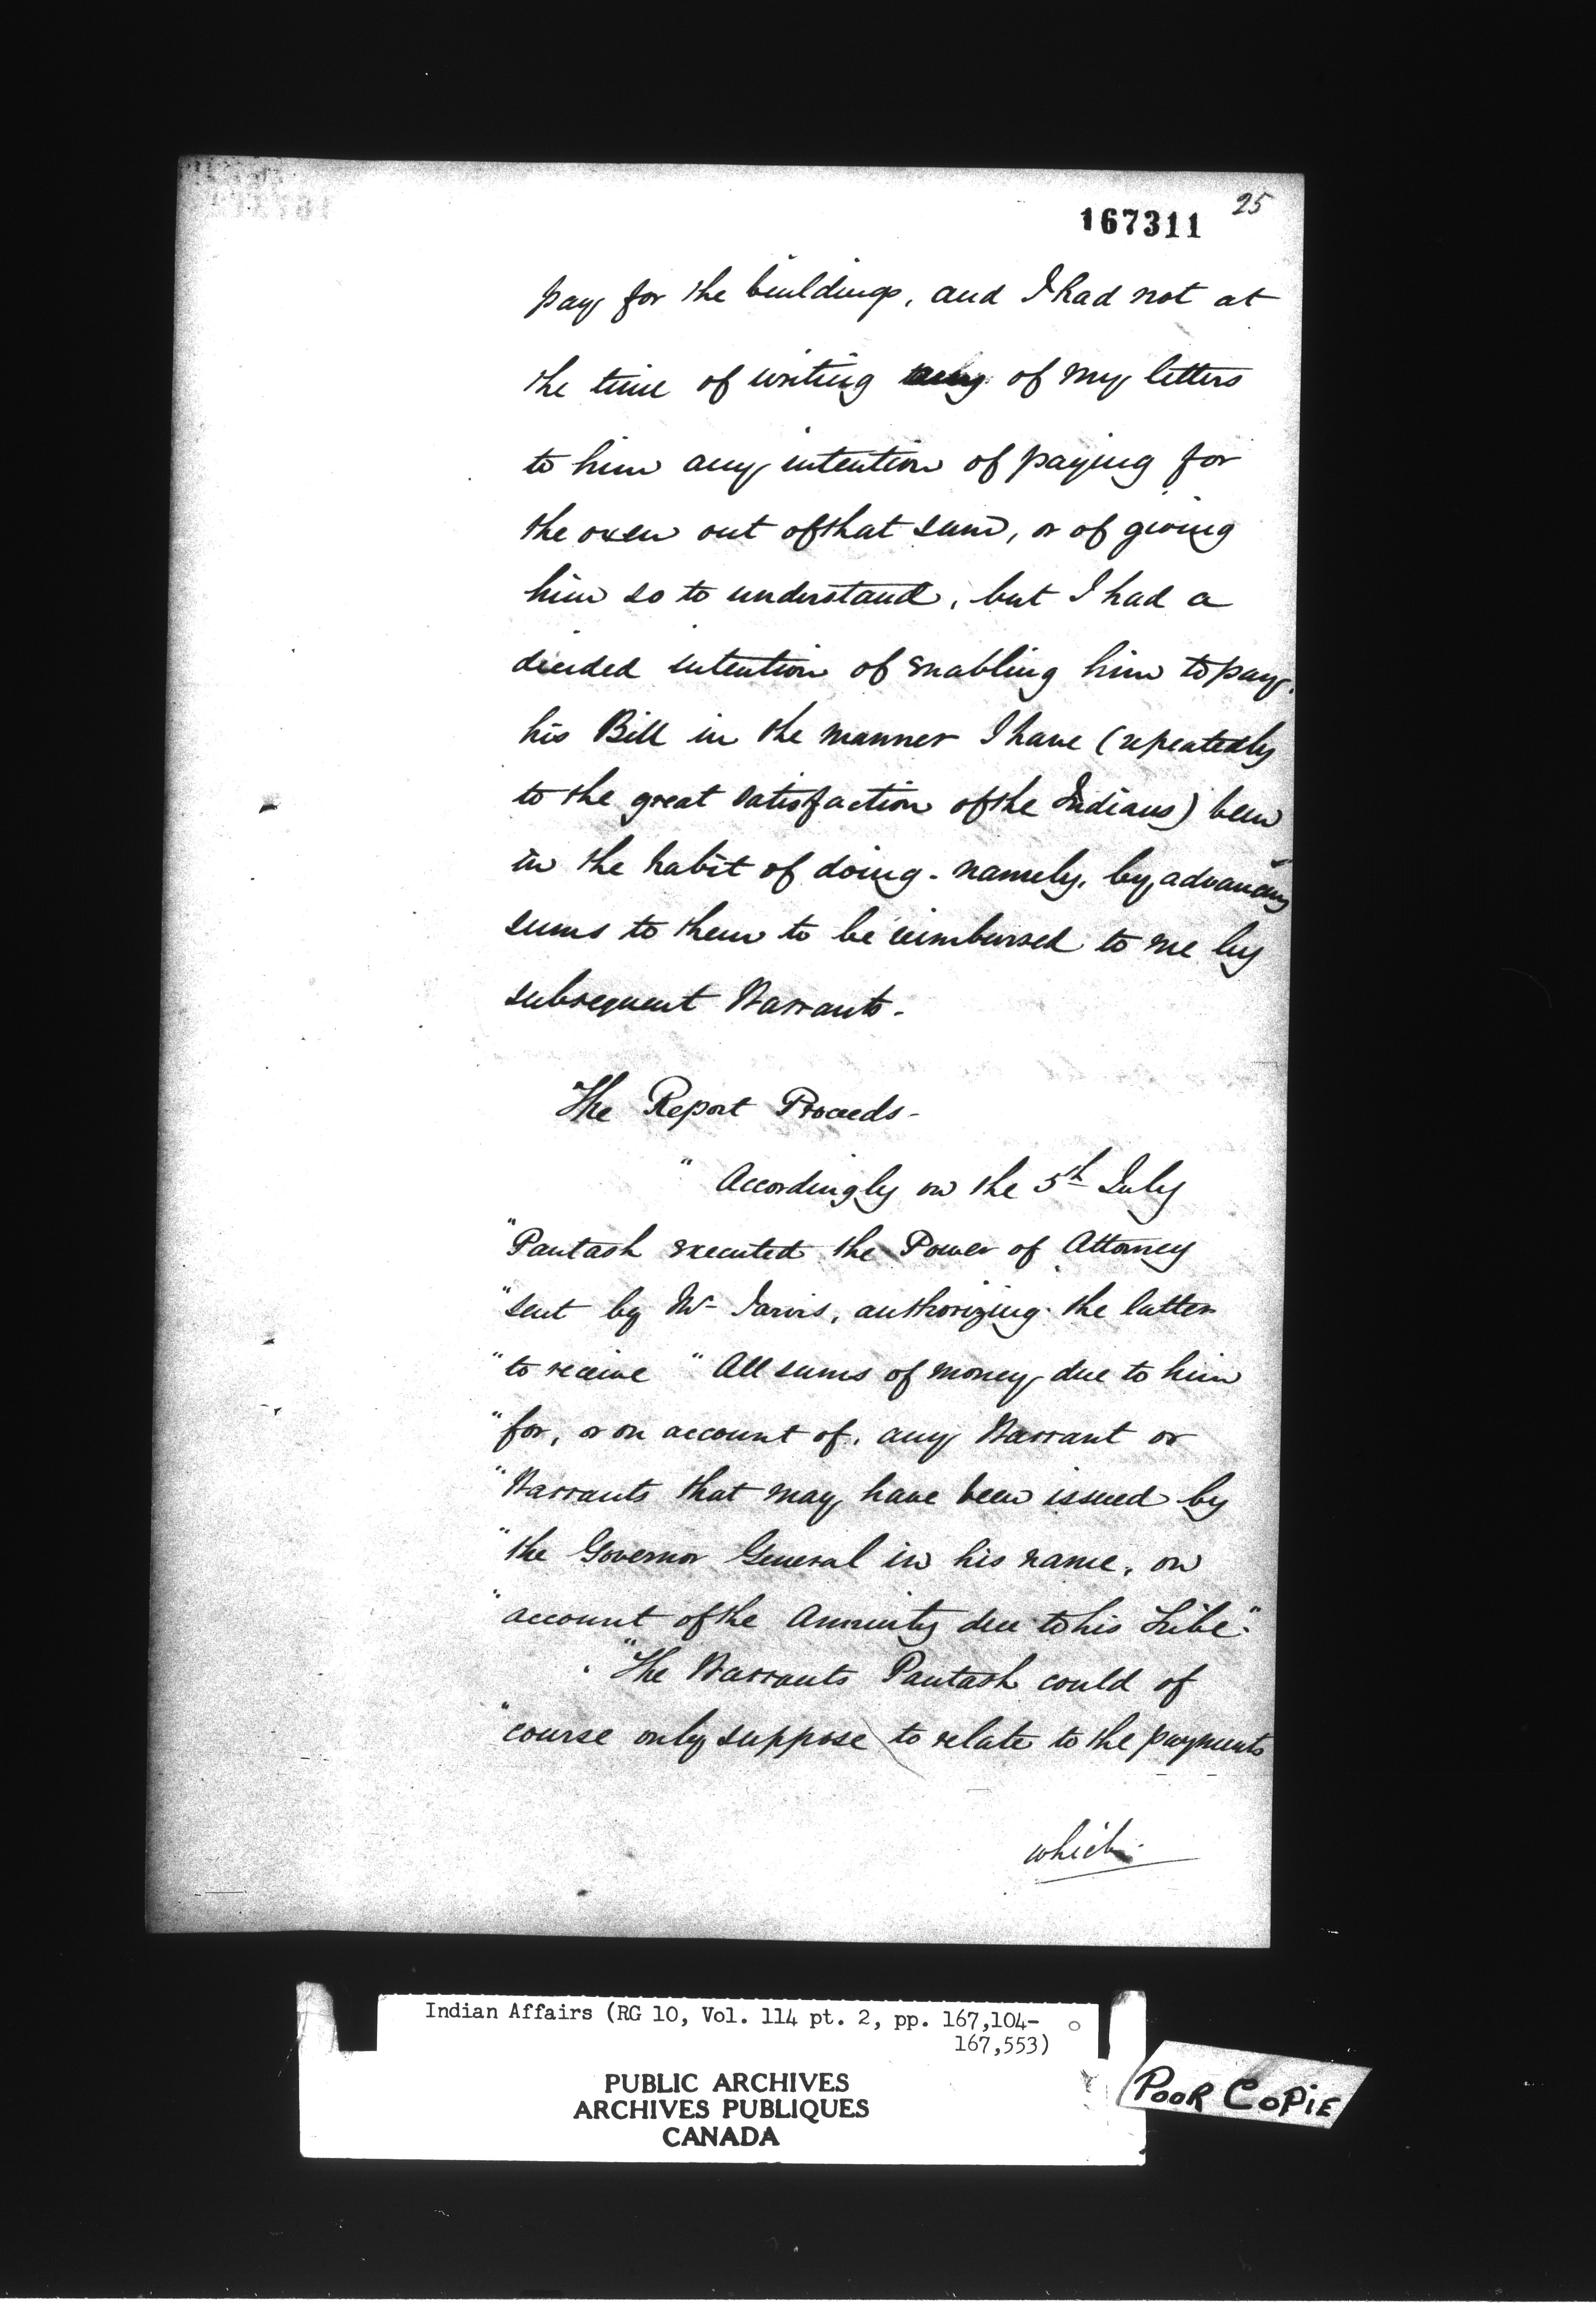 25
167311
pay for the buildings, and I had not at
the time of writing any of my letters
to him any intention of paying for
the oxen out of that sum, or of giving
him so to understand, but I had a
decided intention of enabling him to pay
his Bill in the manner I have (repeatedly
to the great satisfaction of the Indians) been
in the habit of doing - namely, by advancing
sums to them to be reimbursed to me by
subsequent Warrants -
The Report Proceeds -
" Accordingly on the 5th July
"Pautash executed the Power of Attorney
"sent by Mr Jarvis, authorizing the latter
"to receive "All sums of money due to him
"for, or on account of, any Warrant or
"Warrants that may have been issued by
"the Governor General in his name, on
"account of the Annuity due to his Tribe".
"The Warrants Pautash could of
"course only suppose to relate to the payments
which
Indian Affairs (RG 10, Vol. 114 pt. 2, pp. 167,104-
167,553)
PUBLIC ARCHIVES
ARCHIVES PUBLIQUES
CANADA
POOR COPIE